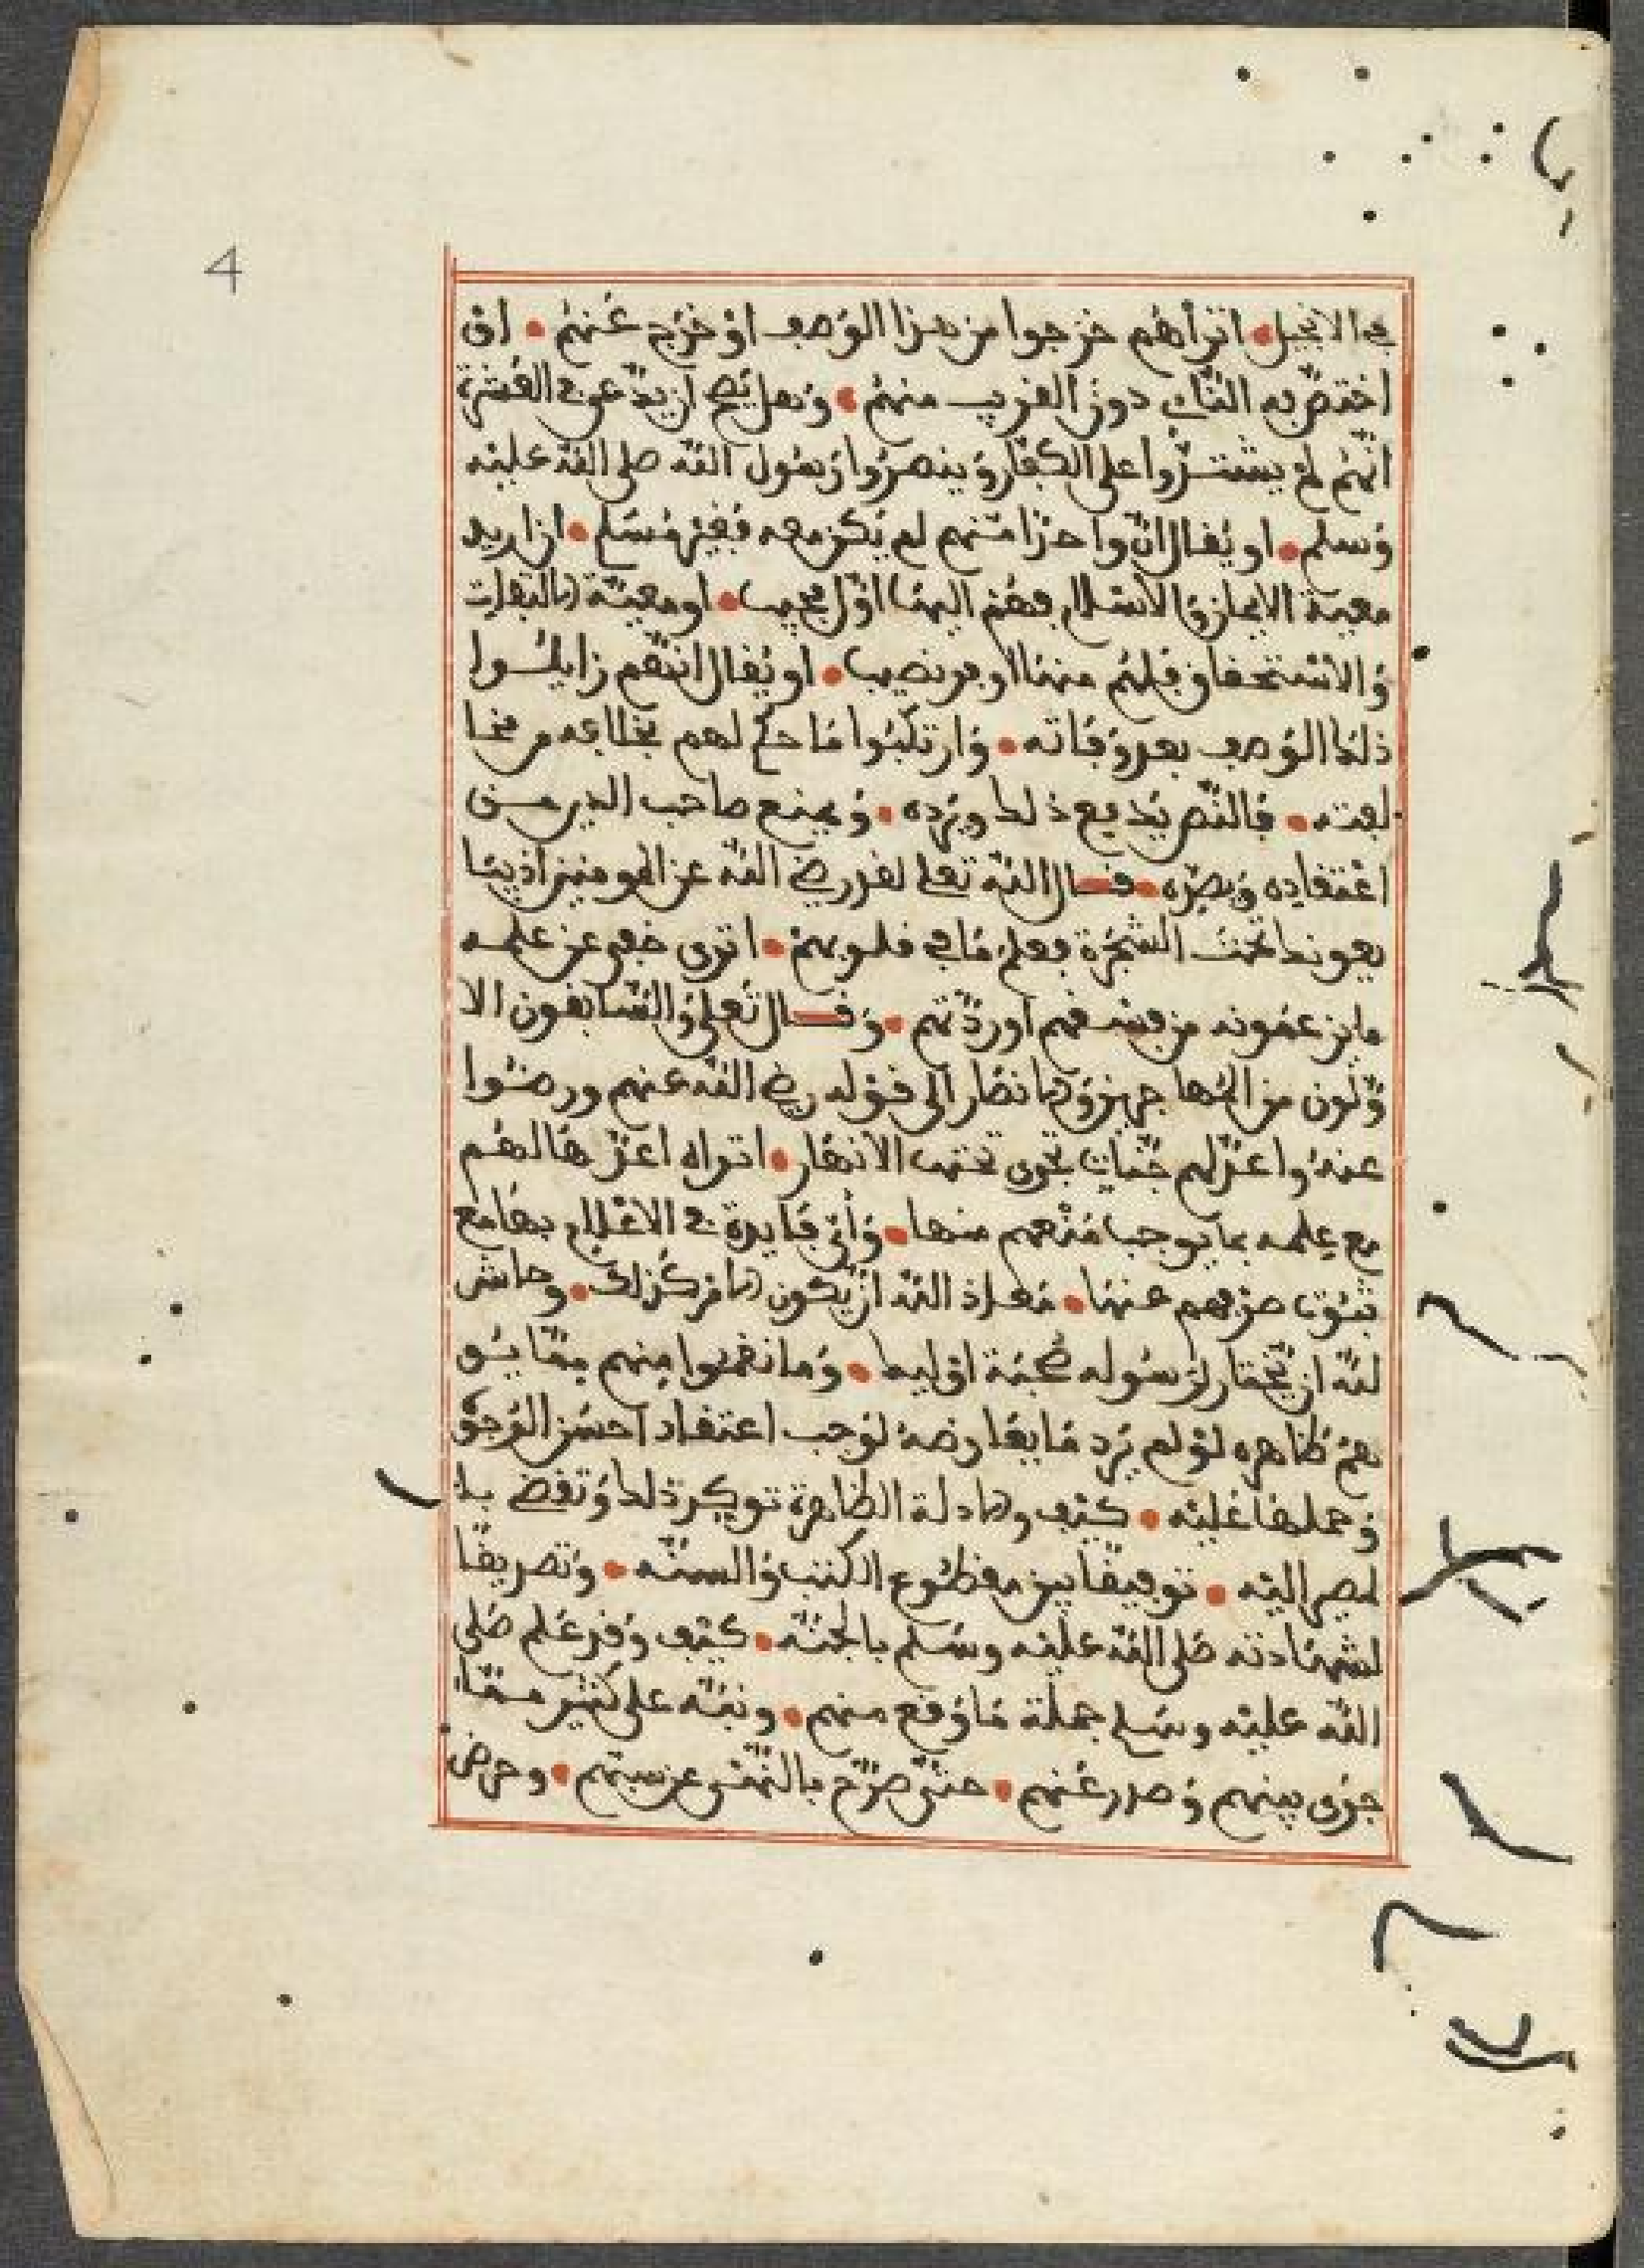 4
في الانجيل • اتراهم خرجوا من هذا الوصف او خرج عنهم • او
اختص به الثاني دون القريب منهم • وهل يصح ان يدعى في العشرة
انهم لم يشتدوا على الكفار وينصروا رسول الله صلى الله عليه
وسلم • او يقال ان واحدا منهم لم يكن معه فغير مسلم • ان اريد
معية الايمان والاسلام فهم اليها اول مجيب • او معية
والاستحقاق فلهم منها اوفر نصيب • او يقال انهم زايلوا
ذلك الوصف بعد وفاته • وارتكبوا ما حكم لهم بخلافه من مخا
لفته • فالنص يدفع ذلك ويرده • ويمنع صاحب الدين من
اعتقاده ويصده • قال الله تعلى لقد رضي الله عن المومنين اذ يبا
يعونك تحت الشجرة فعلم ما في قلوبهم • اترى خفي عن علمه
ما يزعمونه من فسقهم او ردتهم • وقال تعلى والسابقون الا
ولون من المها جرين والانصار الى قوله رضي الله عنهم ورضوا
عنه واعد لهم جنات تجري تحتها الانهار • اتراه اعدها لهم
مع علمه بما يوجب منعهم منها • واي فايدة في الاعلام بها مع
ثبوت صرفهم عنها • معاذ الله ان يكون الامر كذلك • وحاش
لله ان يختار لرسوله صحبة اوليك • وما نقموا منهم مما يو
هم ظاهره لو لم يرد ما يعارضه لوجب اعتقاد احسن الوجوه
وحملها عليه • كيف والادلة الظاهرة توكد ذلك وتقضي با
لمصير اليه • توفيقا بين مقطوع الكتب والسنه • وتصديقا
لشهادته صلى الله عليه وسلم بالجنه • كيف وقد علم صلى
الله عليه وسلم جملة ما وقع منهم • ونبه على كثير مما
جرى بينهم وصدر عنهم • حتى صرح بالنهي عن سبهم • وحرض